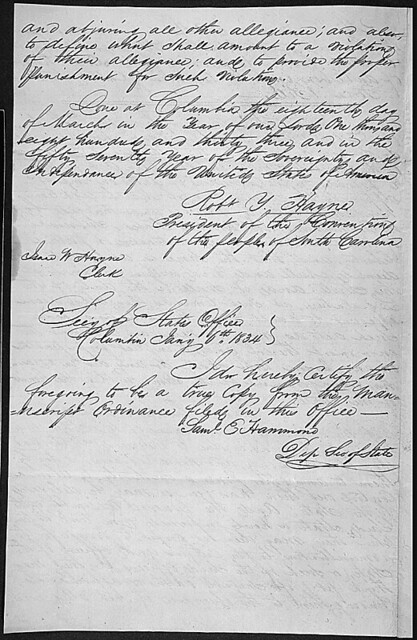 and abjuring all other allegiance; and also,
to define what shall amount to a violation
of their allegiance; and to provide the proper
punishment for such violation.
Done at Columbia the eighteenth day
of March in the Year of our Lord One thousand
eight hundred and thirty three, and in the
fifty seventh Year of the Sovereignty and
Independance of the United States of America
Robt Y. Hayne
President of the Convention
of the people of South Carolina
Isaac W Hayne
Clerk
Secy of States Office
Columbia Jany 6th 1834
I do hereby certify the
foregoing to be a true Copy from the Man-
=uscript Ordinance filed in this Office —
Saml. E. Hammond
Dep Sec of State